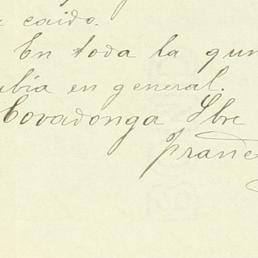 caido.
En toda la quin
ubia en general.
Covadonga Sbre
Franc